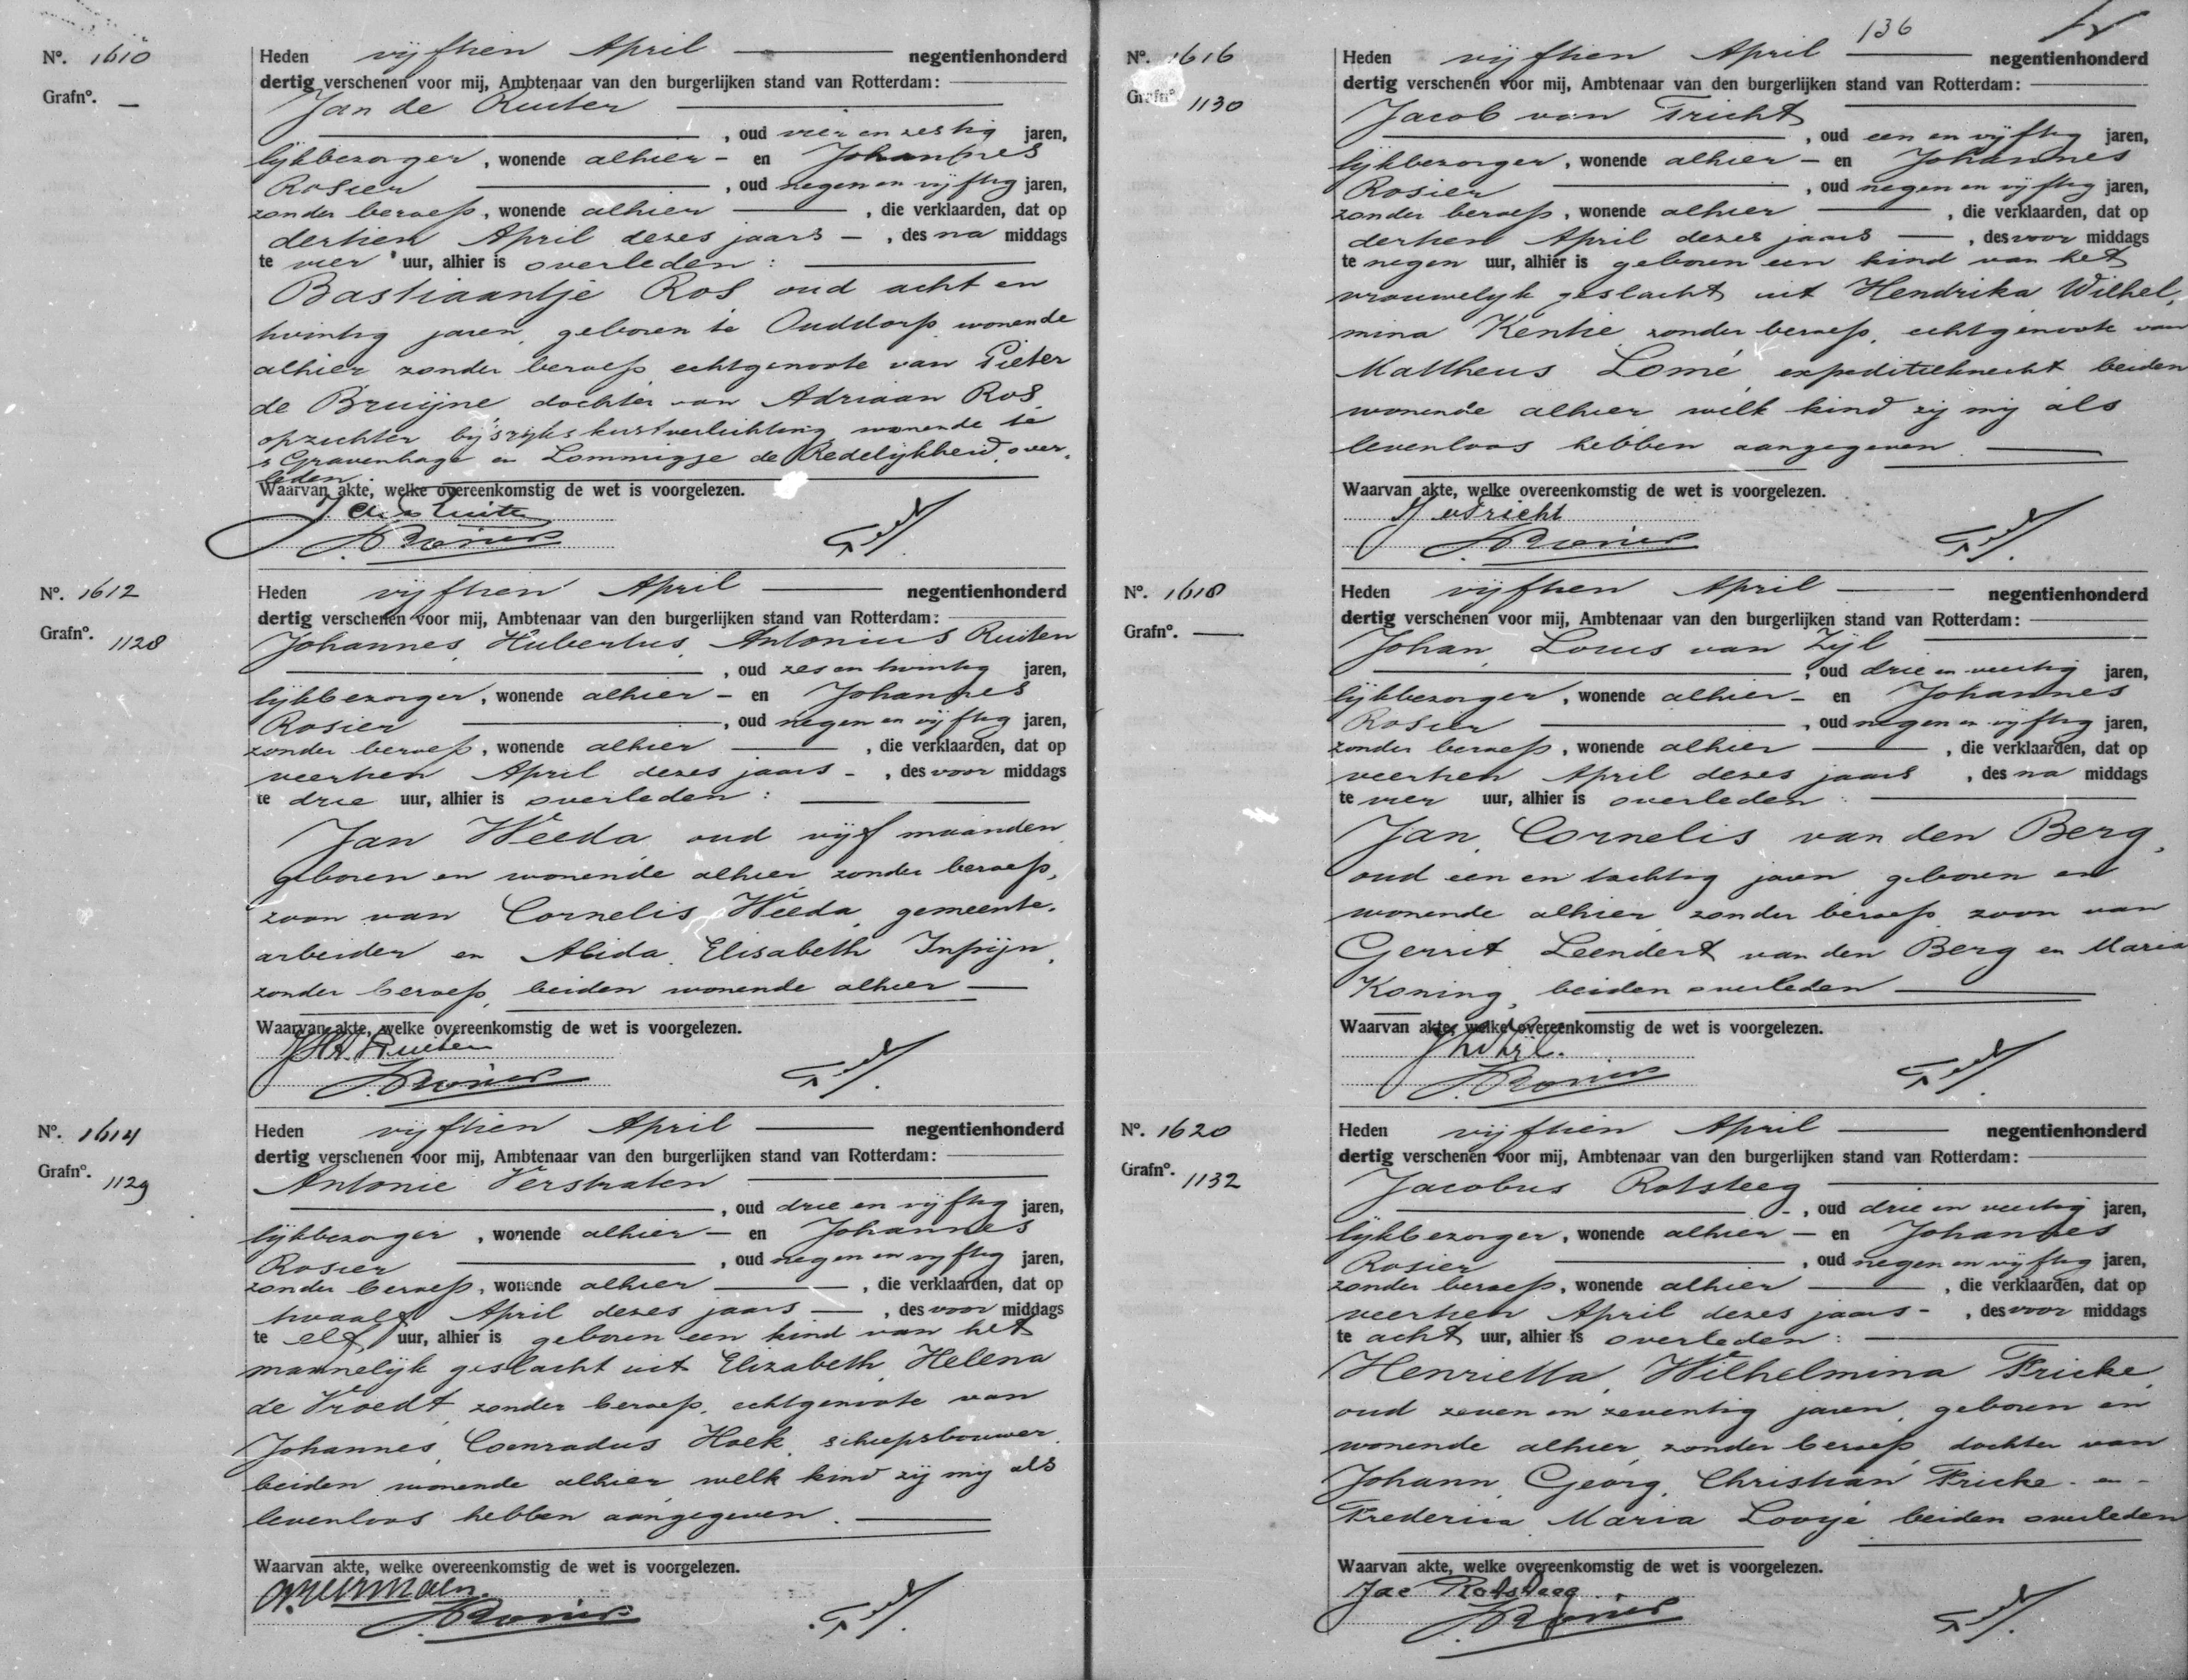 Nº. 1610
Grafnº. —
Heden vijftien April negentienhonderd
dertig verschenen voor mij, Ambtenaar van den burgerlijken stand van Rotterdam:
Jan de Ruiter
, oud vier en zestig jaren,
lijkbezorger, wonende alhier - en Johannes
Rosier , oud negen en vijftig jaren,
zonder beroep, wonende alhier , die verklaarden, dat op
dertien April dezes jaars - , des na middags
te vier uur, alhier is overleden:
Bastiaantje Ros oud acht en
twintig jaren, geboren te Ouddorp wonende
alhier zonder beroep echtgenoote van Pieter
de Bruijne dochter van Adriaan Ros
opzichter bij 's rijks kustverlichting wonende te
s Gravenhage en Lommigje de Redelijkheid, over-
leden
Waarvan akte, welke overeenkomstig de wet is voorgelezen.
J. de Ruiter
J. Rosier
Nº. 1612
Grafnº. 1128
Heden vijftien April negentienhonderd
dertig verschenen voor mij, Ambtenaar van den burgerlijken stand van Rotterdam:
Johannes Hubertus Antonius Ruiten
, oud zes en twintig jaren,
lijkbezorger, wonende alhier - en Johannes
Rosier , oud negen en vijftig jaren,
zonder beroep, wonende alhier , die verklaarden, dat op
veertien April dezes jaars - , des voor middags
te drie uur, alhier is overleden:
Jan Weeda oud vijf maanden
geboren en wonende alhier zonder beroep,
zoon van Cornelis Weeda gemeente-
arbeider en Alida Elisabeth Inpijn,
zonder beroep, beiden wonende alhier
Waarvan akte, welke overeenkomstig de wet is voorgelezen.
JHA Ruiten
J. Rosier
Nº. 1614
Grafnº. 1129
Heden vijftien April negentienhonderd
dertig verschenen voor mij, Ambtenaar van den burgerlijken stand van Rotterdam:
Antonie Verstraten
, oud drie en vijftig jaren,
lijkbezorger, wonende alhier - en Johannes
Rosier , oud negen en vijftig jaren,
zonder beroep, wonende alhier , die verklaarden, dat op
twaalf April dezes jaars , des voor middags
te elf uur, alhier is geboren een kind van het
mannelijk geslacht uit Elizabeth Helena
de Vroedt zonder beroep, echtgenoote van
Johannes Coenradus Hoek, scheepsbouwer
beiden wonende alhier welk kind zij mij als
levenloos hebben aangegeven.
Waarvan akte, welke overeenkomstig de wet is voorgelezen.
J. Rosier
136
Nº. 1616
Grafnº 1130
Heden vijftien April negentienhonderd
dertig verschenen voor mij, Ambtenaar van den burgerlijken stand van Rotterdam:
Jacob van Tricht
, oud een en vijftig jaren,
lijkbezorger, wonende alhier - en Johannes
Rosier , oud negen en vijftig jaren,
zonder beroep, wonende alhier , die verklaarden, dat op
dertien April dezes jaars , des voor middags
te negen uur, alhier is geboren een kind van het
vrouwelijk geslacht uit Hendrika Wilhel-
mina Kentie zonder beroep, echtgenoote van
Mattheus Lomé expeditieknecht beiden
wonende alhier welk kind zij mij als
levenloos hebben aangegeven.
Waarvan akte, welke overeenkomstig de wet is voorgelezen.
J v Tricht
J. Rosier
Nº. 1618
Grafnº. —
Heden vijftien April negentienhonderd
dertig verschenen voor mij, Ambtenaar van den burgerlijken stand van Rotterdam:
Johan Louis van Zijl
, oud drie en veertig jaren,
lijkbezorger, wonende alhier - en Johannes
Rosier , oud negen en vijftig jaren,
zonder beroep, wonende alhier , die verklaarden, dat op
veertien April dezes jaars , des na middags
te vier uur, alhier is overleden:
Jan Cornelis van den Berg,
oud een en tachtig jaren geboren en
wonende alhier zonder beroep zoon van
Gerrit Leendert van den Berg en Maria
Koning, beiden overleden
Waarvan akte, welke overeenkomstig de wet is voorgelezen.
J L v Zijl.
J. Rosier
Nº. 1620
Grafnº. 1132
Heden vijftien April negentienhonderd
dertig verschenen voor mij, Ambtenaar van den burgerlijken stand van Rotterdam:
Jacobus Rotsteeg
, oud drie en veertig jaren,
lijkbezorger, wonende alhier - en Johannes
Rosier , oud negen en vijftig jaren,
zonder beroep, wonende alhier , die verklaarden, dat op
veertien April dezes jaars - , des voor middags
te acht uur, alhier is overleden:
Henrietta Wilhelmina Fricke
oud zeven en zeventig jaren, geboren en
wonende alhier zonder beroep dochter van
Johann Georg Christian Fricke - en -
Frederica Maria Looijé beiden overleden
Waarvan akte, welke overeenkomstig de wet is voorgelezen.
Jac Rotsteeg
J. Rosier